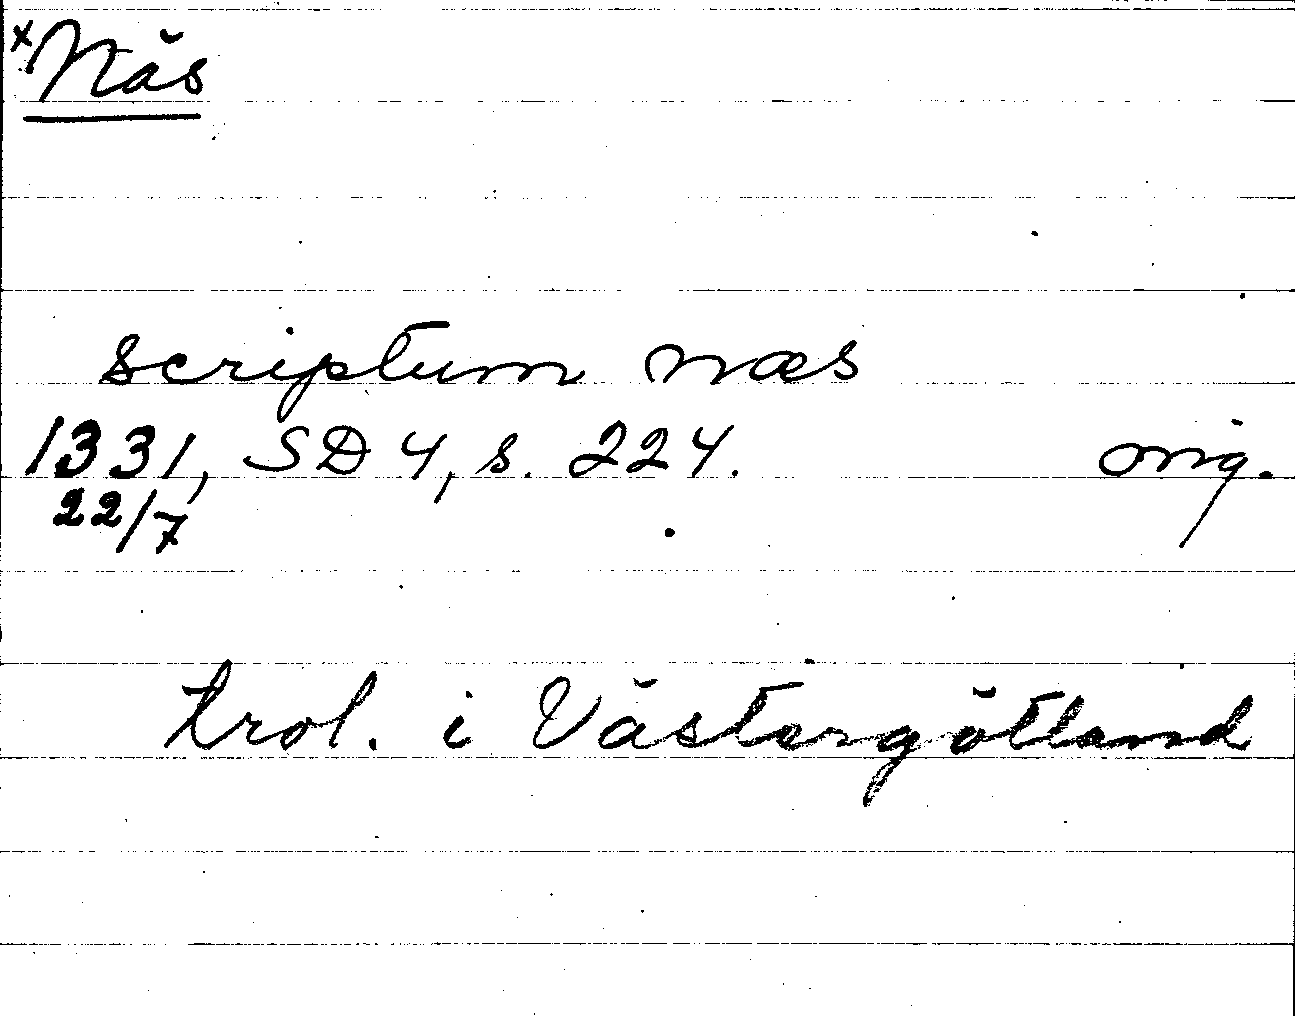 x Näs
scriptum næs
1331, SD 4, s. 224. orig.
22/7
trol. i Västergötland